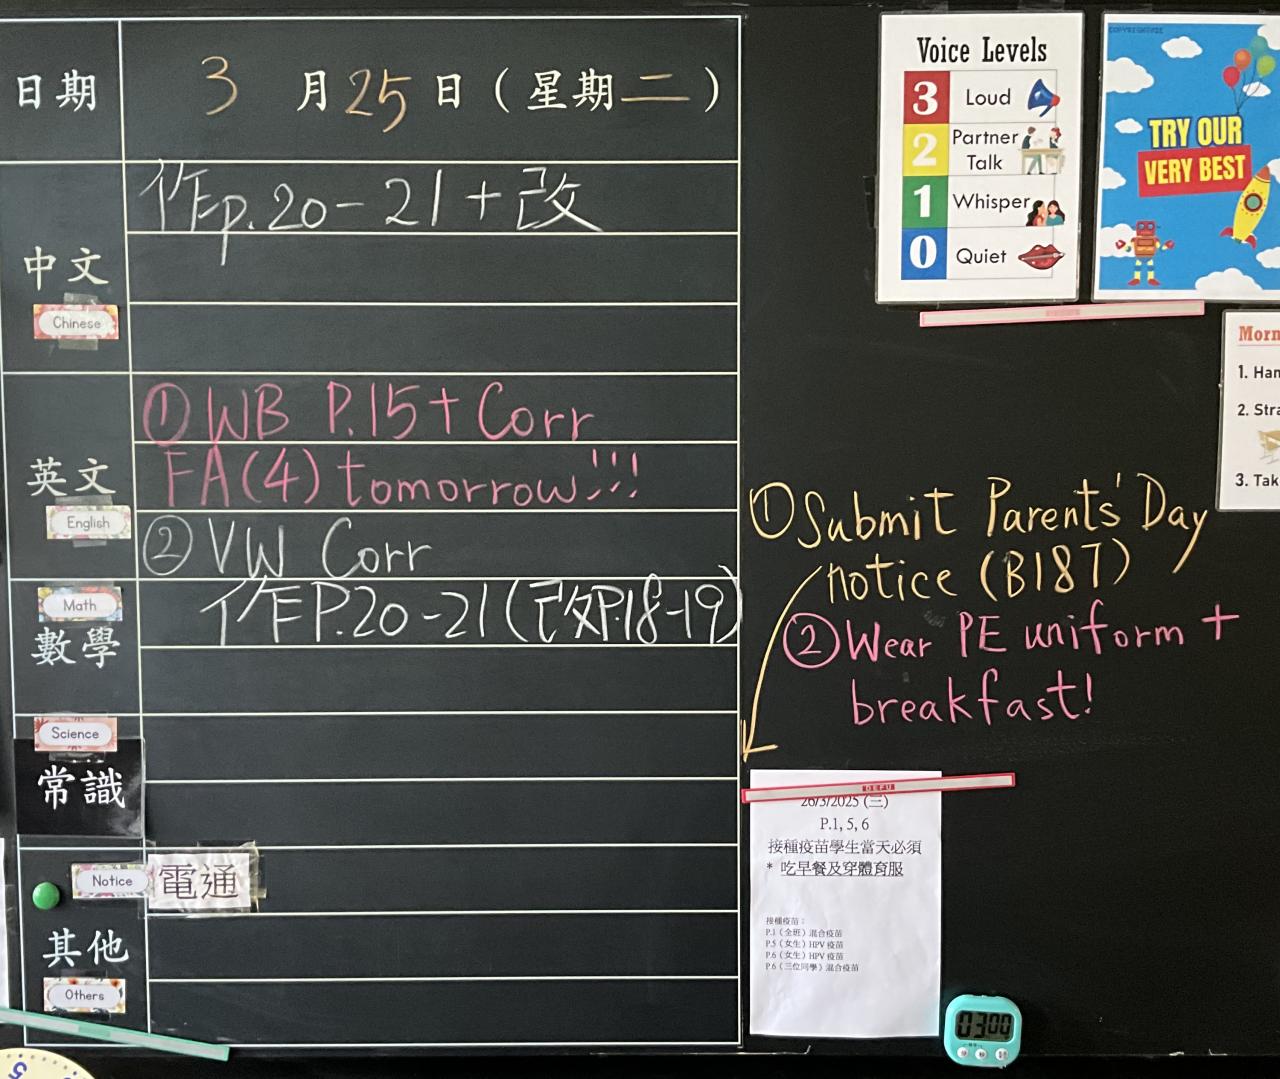 日期 3 月 25 日 (星期二)
中文
Chinese
作p.20-21+改
英文
English
① WB P.15+ Corr
FA(4) tomorrow!!!
② VW Corr
Math
數學
作P.20-21(改P.18-19)
Science
常識
Notice
電通
其他
Others
Voice Levels
3 Loud
2 Partner
Talk
1 Whisper
0 Quiet
TRY OUR
VERY BEST
1.
2.
3.
① Submit Parents' Day
notice (B187)
② Wear PE uniform +
breakfast!
DEFU
26/3/2025 (三)
P.1, 5, 6
接種疫苗學生當天必須
* 吃早餐及穿體育服
接種疫苗：
P.1（全班）混合疫苗
P.5（女生）HPV 疫苗
P.6（女生）HPV 疫苗
P.6（三位同學）混合疫苗
03:00
5